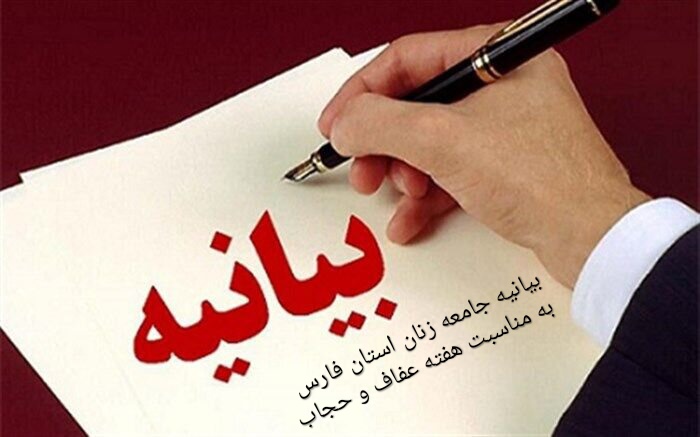 بیانیه
بیانیه جامعه زنان استان فارس
به مناسبت هفته عفاف و حجاب